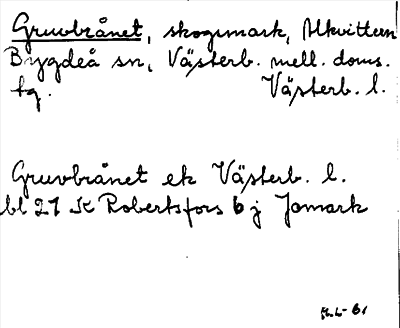 Gruvbrånet, skogsmark, Ålkvittern
Bygdeå sn, Västerb. mell. doms.
tg. Västerb. l.
Gruvbrånet ek Västerb. l.
bl 21 K Robertsfors 6 j Jomark